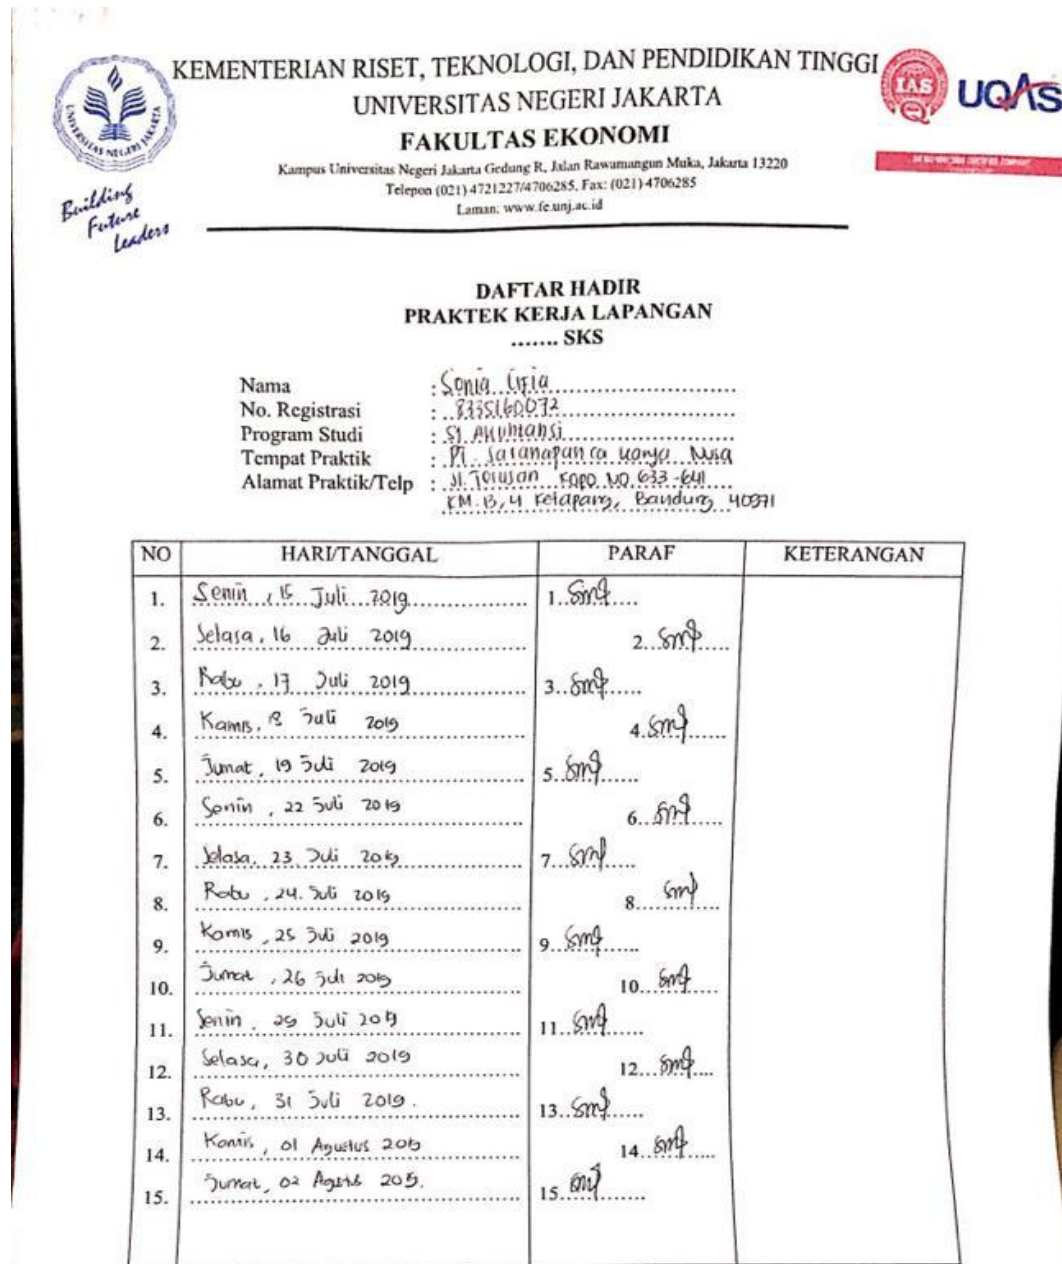 KEMENTERIAN RISET, TEKNOLOGI, DAN PENDIDIKAN TINGGI
UNIVERSITAS NEGERI JAKARTA
FAKULTAS EKONOMI
Kampus Universitas Negeri Jakarta Gedung R, Jalan Rawamangun Muka, Jakarta 13220
Telepon (021) 4721227/4706285, Fax: (021) 4706285
Laman: www.fe.unj.ac.id
UNIVERSITAS NEGERI JAKARTA
Building
Future
Leaders
IAS
UQAS
DAFTAR HADIR
PRAKTEK KERJA LAPANGAN
....... SKS
Nama : Sonia
No. Registrasi : 8335160072
Program Studi : S1 Akuntansi
Tempat Praktik : PT. Saranapanca Karya Nusa
Alamat Praktik/Telp : Jl. Terusan Kopo No. 633-641
KM. 13,4 Ketapang, Bandung 40971
NO HARI/TANGGAL PARAF KETERANGAN
1. Senin, 15 Juli 2019 1.
2. Selasa, 16 Juli 2019 2.
3. Rabu, 17 Juli 2019 3.
4. Kamis, 18 Juli 2019 4.
5. Jumat, 19 Juli 2019 5.
6. Senin, 22 Juli 2019 6.
7. Selasa, 23 Juli 2019 7.
8. Rabu, 24. Juli 2019 8.
9. Kamis, 25 Juli 2019 9.
10. Jumat, 26 Juli 2019 10.
11. Senin, 29 Juli 2019 11.
12. Selasa, 30 Juli 2019 12.
13. Rabu, 31 Juli 2019. 13.
14. Kamis, 01 Agustus 2019 14.
15. Jumat, 02 Agustus 2019. 15.